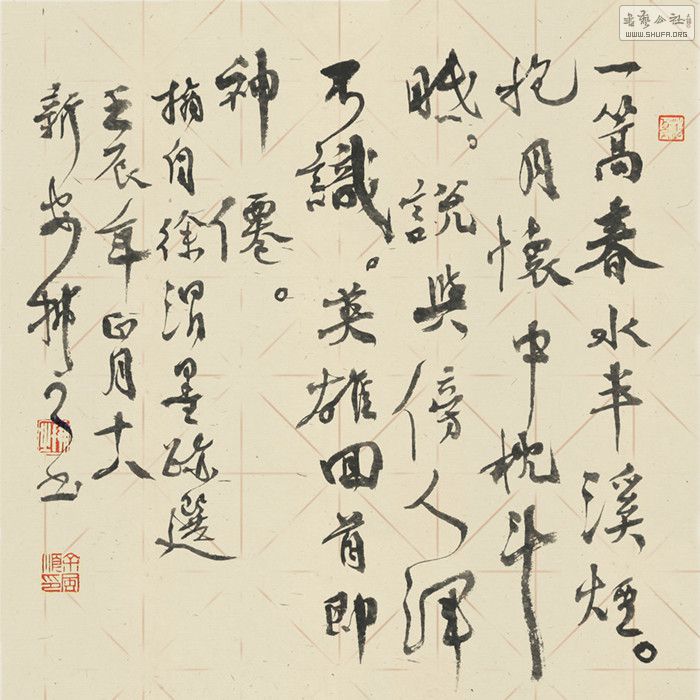 一篙春水半溪煙。
抱月懷中枕斗
眠。說與傍人渾
不識。英雄回首即
神僊。
摘自徐渭墨跡選
壬辰年正月十六
新安
書
書藝公社
WWW.SHUFA.ORG